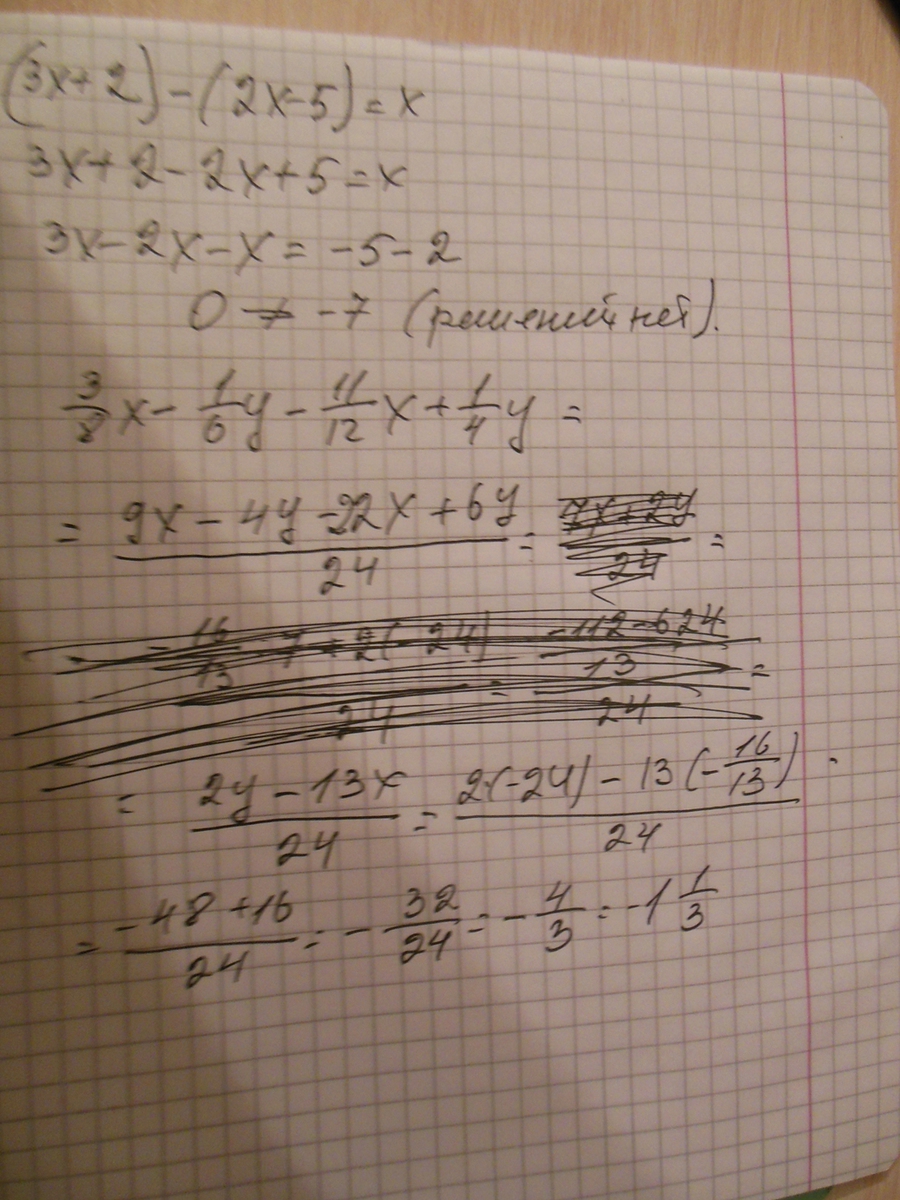 (3x+2)-(2x-5)=x
3x+2-2x+5=x
3x-2x-x=-5-2
0≠-7 (решений нет).
3/8x-1/6y-11/12x+1/4y=
=(9x-4y-22x+6y)/24= =
=(2y-13x)/24=(2(-24)-13(-16/13))/24=
=(-48+16)/24=-32/24=-4/3=-1 1/3